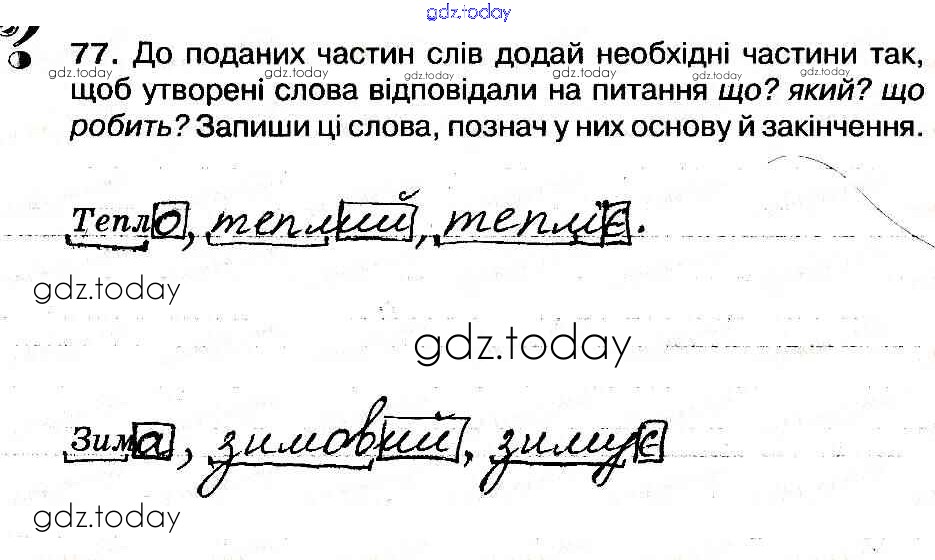 gdz.today
77. До поданих частин слів додай необхідні частини так,
gdz.today gdz.today gdz.today gdz.today gdz.today
щоб утворені слова відповідали на питання що? який? що
робить? Запиши ці слова, познач у них основу й закінчення.
Тепло, теплий, тепліє.
gdz.today
gdz.today
Зима, зимовий, зимує
gdz.today